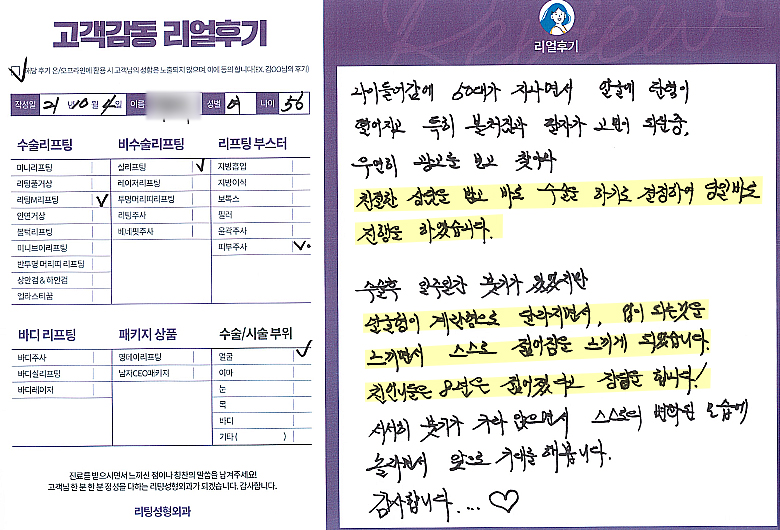 고객감동 리얼후기
해당 후기 온/오프라인에 활용 시 고객님의 성함은 노출되지 않으며, 이에 동의 합니다(EX. 김OO님의 후기)
작성일 21 년 10 월 4 일 이름 성별 여 나이 56
수술리프팅
미니리프팅
리팅풀거상
리팅M리프팅
안면거상
목턱리프팅
미니브이리프팅
반투명 머리띠 리프팅
상안검 & 하안검
엘라스티꿈
비수술리프팅
실리프팅
레이저리프팅
투명머리띠리프팅
리팅주사
베네핏주사
리프팅 부스터
지방흡입
지방이식
보톡스
필러
윤곽주사
피부주사
바디 리프팅
바디주사
바디실리프팅
바디레이저
패키지 상품
영데이리프팅
남자CEO패키지
수술/시술 부위
얼굴
이마
눈
목
바디
기타 ( )
진료를 받으시면서 느끼신 점이나 칭찬의 말씀을 남겨주세요!
고객님 한 분 한 분 정성을 다하는 리팅성형외과가 되겠습니다. 감사합니다.
리팅성형외과
Review
리얼후기
나이들어감에 50대가 지나면서 얼굴에 탄력이
떨어지고 특히 볼처짐과 팔자가 고민이 되일중,
우연히 광고를 보고 찾아와
친절한 상담을 받고 바로 수술을 하기로 결정하여 당일바로
진행을 하였습니다.
수술후 일주일간 붓기가 있었지만
얼굴형이 계란형으로 달라지면서, 업이 되는것을
느끼면서 스스로 젊어짐을 느끼게 되었습니다.
지인니들은 8년은 젊어졌다고 장담을 합니다!
서서히 붓기가 가라 앉으면서 스스로의 변화된 모습에
놀라면서 앞으로 기대를 해봅니다.
감사합니다.... ♡